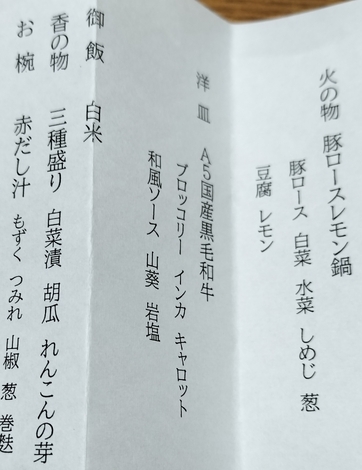 火の物 豚ロースレモン鍋
豚ロース 白菜 水菜 しめじ 葱
豆腐 レモン
洋皿 A5国産黒毛和牛
ブロッコリー インカ キャロット
和風ソース 山葵 岩塩
御飯 白米
香の物 三種盛り 白菜漬 胡瓜 れんこんの芽
お椀 赤だし汁 もずく つみれ 山椒 葱 巻麩